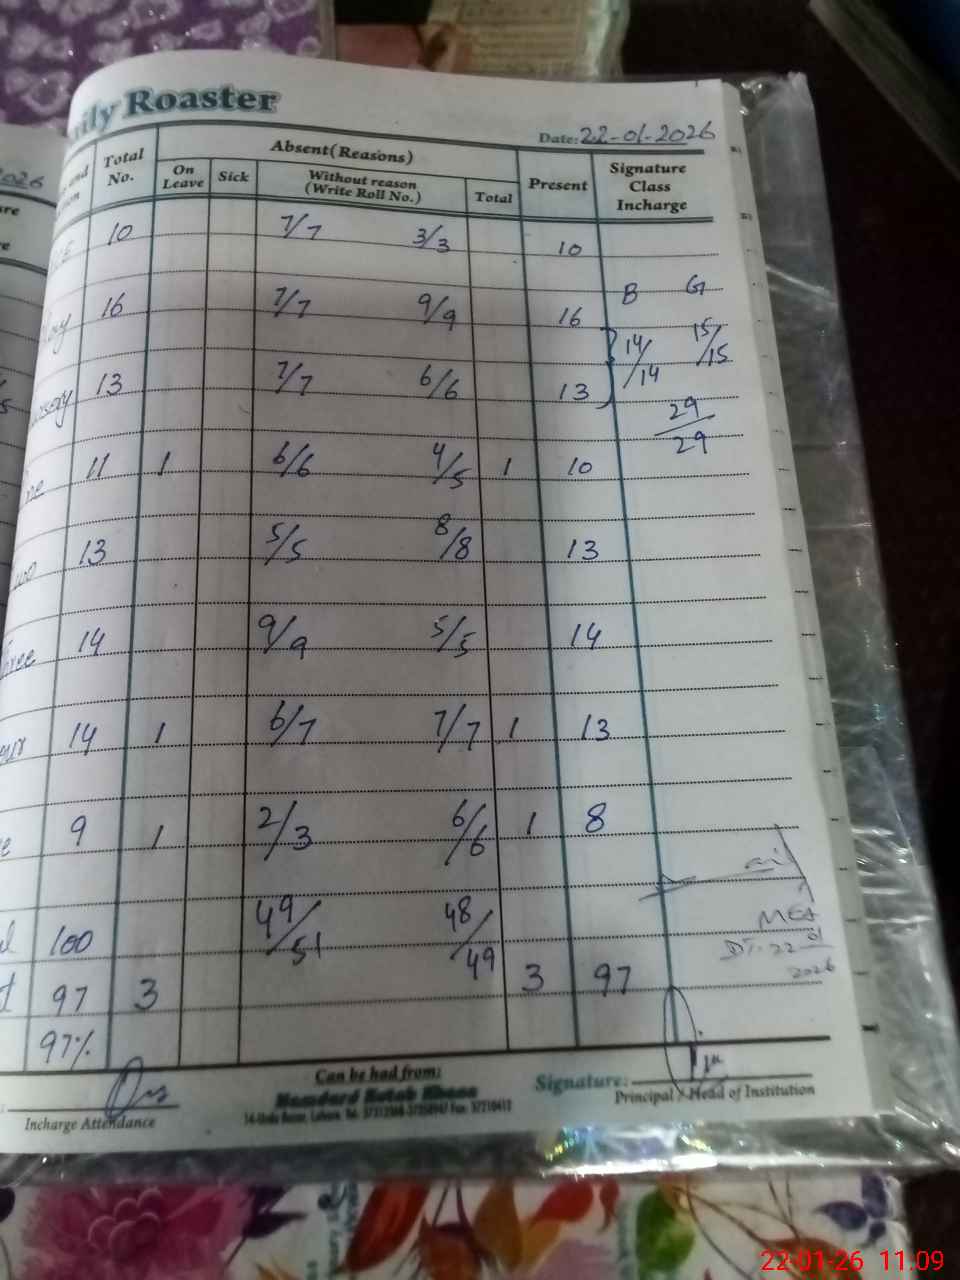 ily Roaster
Date: 22-01-2026
Total No. Absent (Reasons) Present Signature Class Incharge
On Leave Sick Without reason (Write Roll No.) Total
10 7/7 3/3 10
B G
16 7/7 9/9 16
14/14 15/15
13 7/7 6/6 13
29/29
11 1 6/6 4/5 1 10
13 5/5 8/8 13
Three 14 9/9 5/5 14
14 1 6/7 7/7 1 13
9 1 2/3 6/6 1 8
100 49/51 48/49
MEA
DT. 22 01 2026
97 3 3 97
97%
Can be had from:
Hamdard Kutab Khana
Signature:
Principal / Head of Institution
Incharge Attendance
22-01-26 11:09